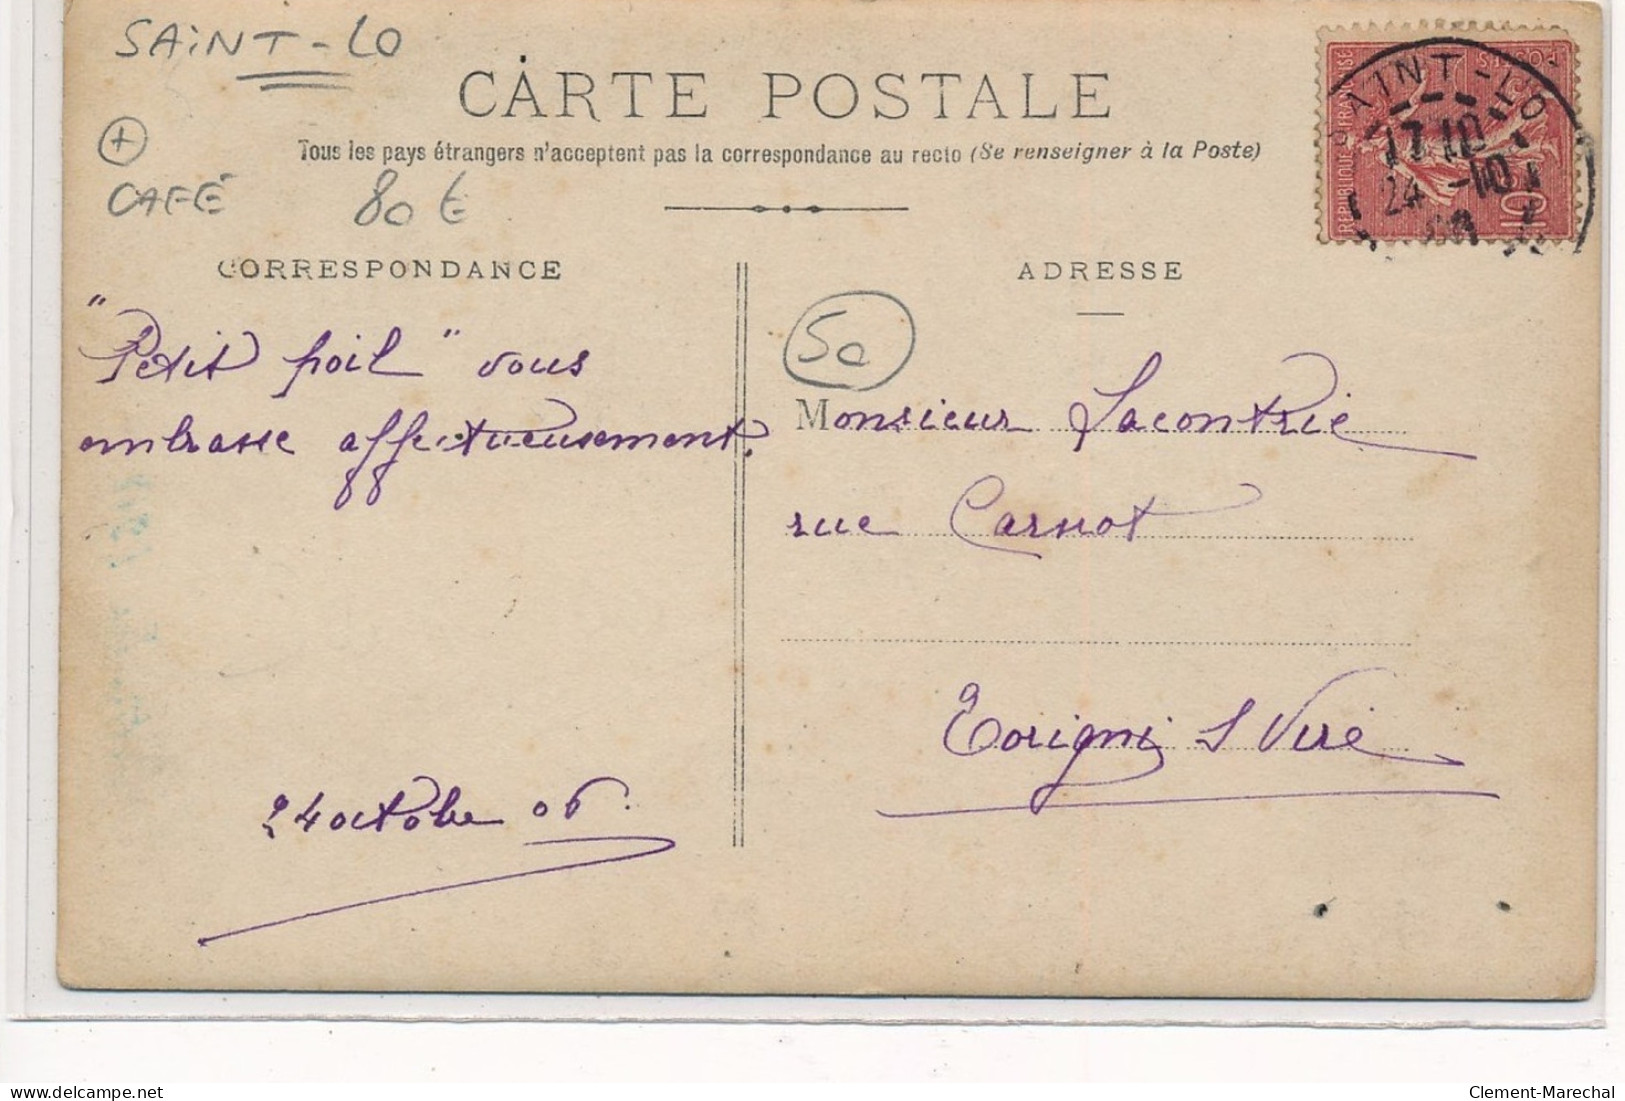 SAINT-LO
CARTE POSTALE
Tous les pays étrangers n'acceptent pas la correspondance au recto (Se renseigner à la Poste)
+
CAFÉ
80 €
REPUBLIQUE FRANÇAISE
POSTES
10
SAINT-LO
17 10
24 -10
CORRESPONDANCE
"Petit poil" vous
embrasse affectueusement.
24 octobre 06.
ADRESSE
50
Monsieur Lacontrie
rue Carnot
Torigni s Vire
delcampe.net
Clement-Marechal